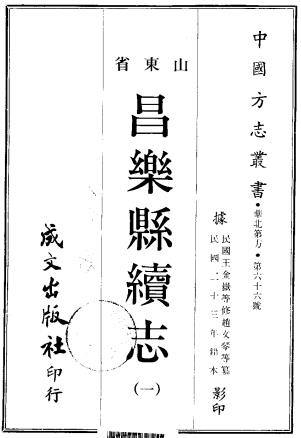 中國方志叢書・華北地方・第六十六號
據民國王金嶽等修趙文琴等纂
民國二十三年鉛本影印
山東省
昌樂縣續志
(一)
成文出版社印行